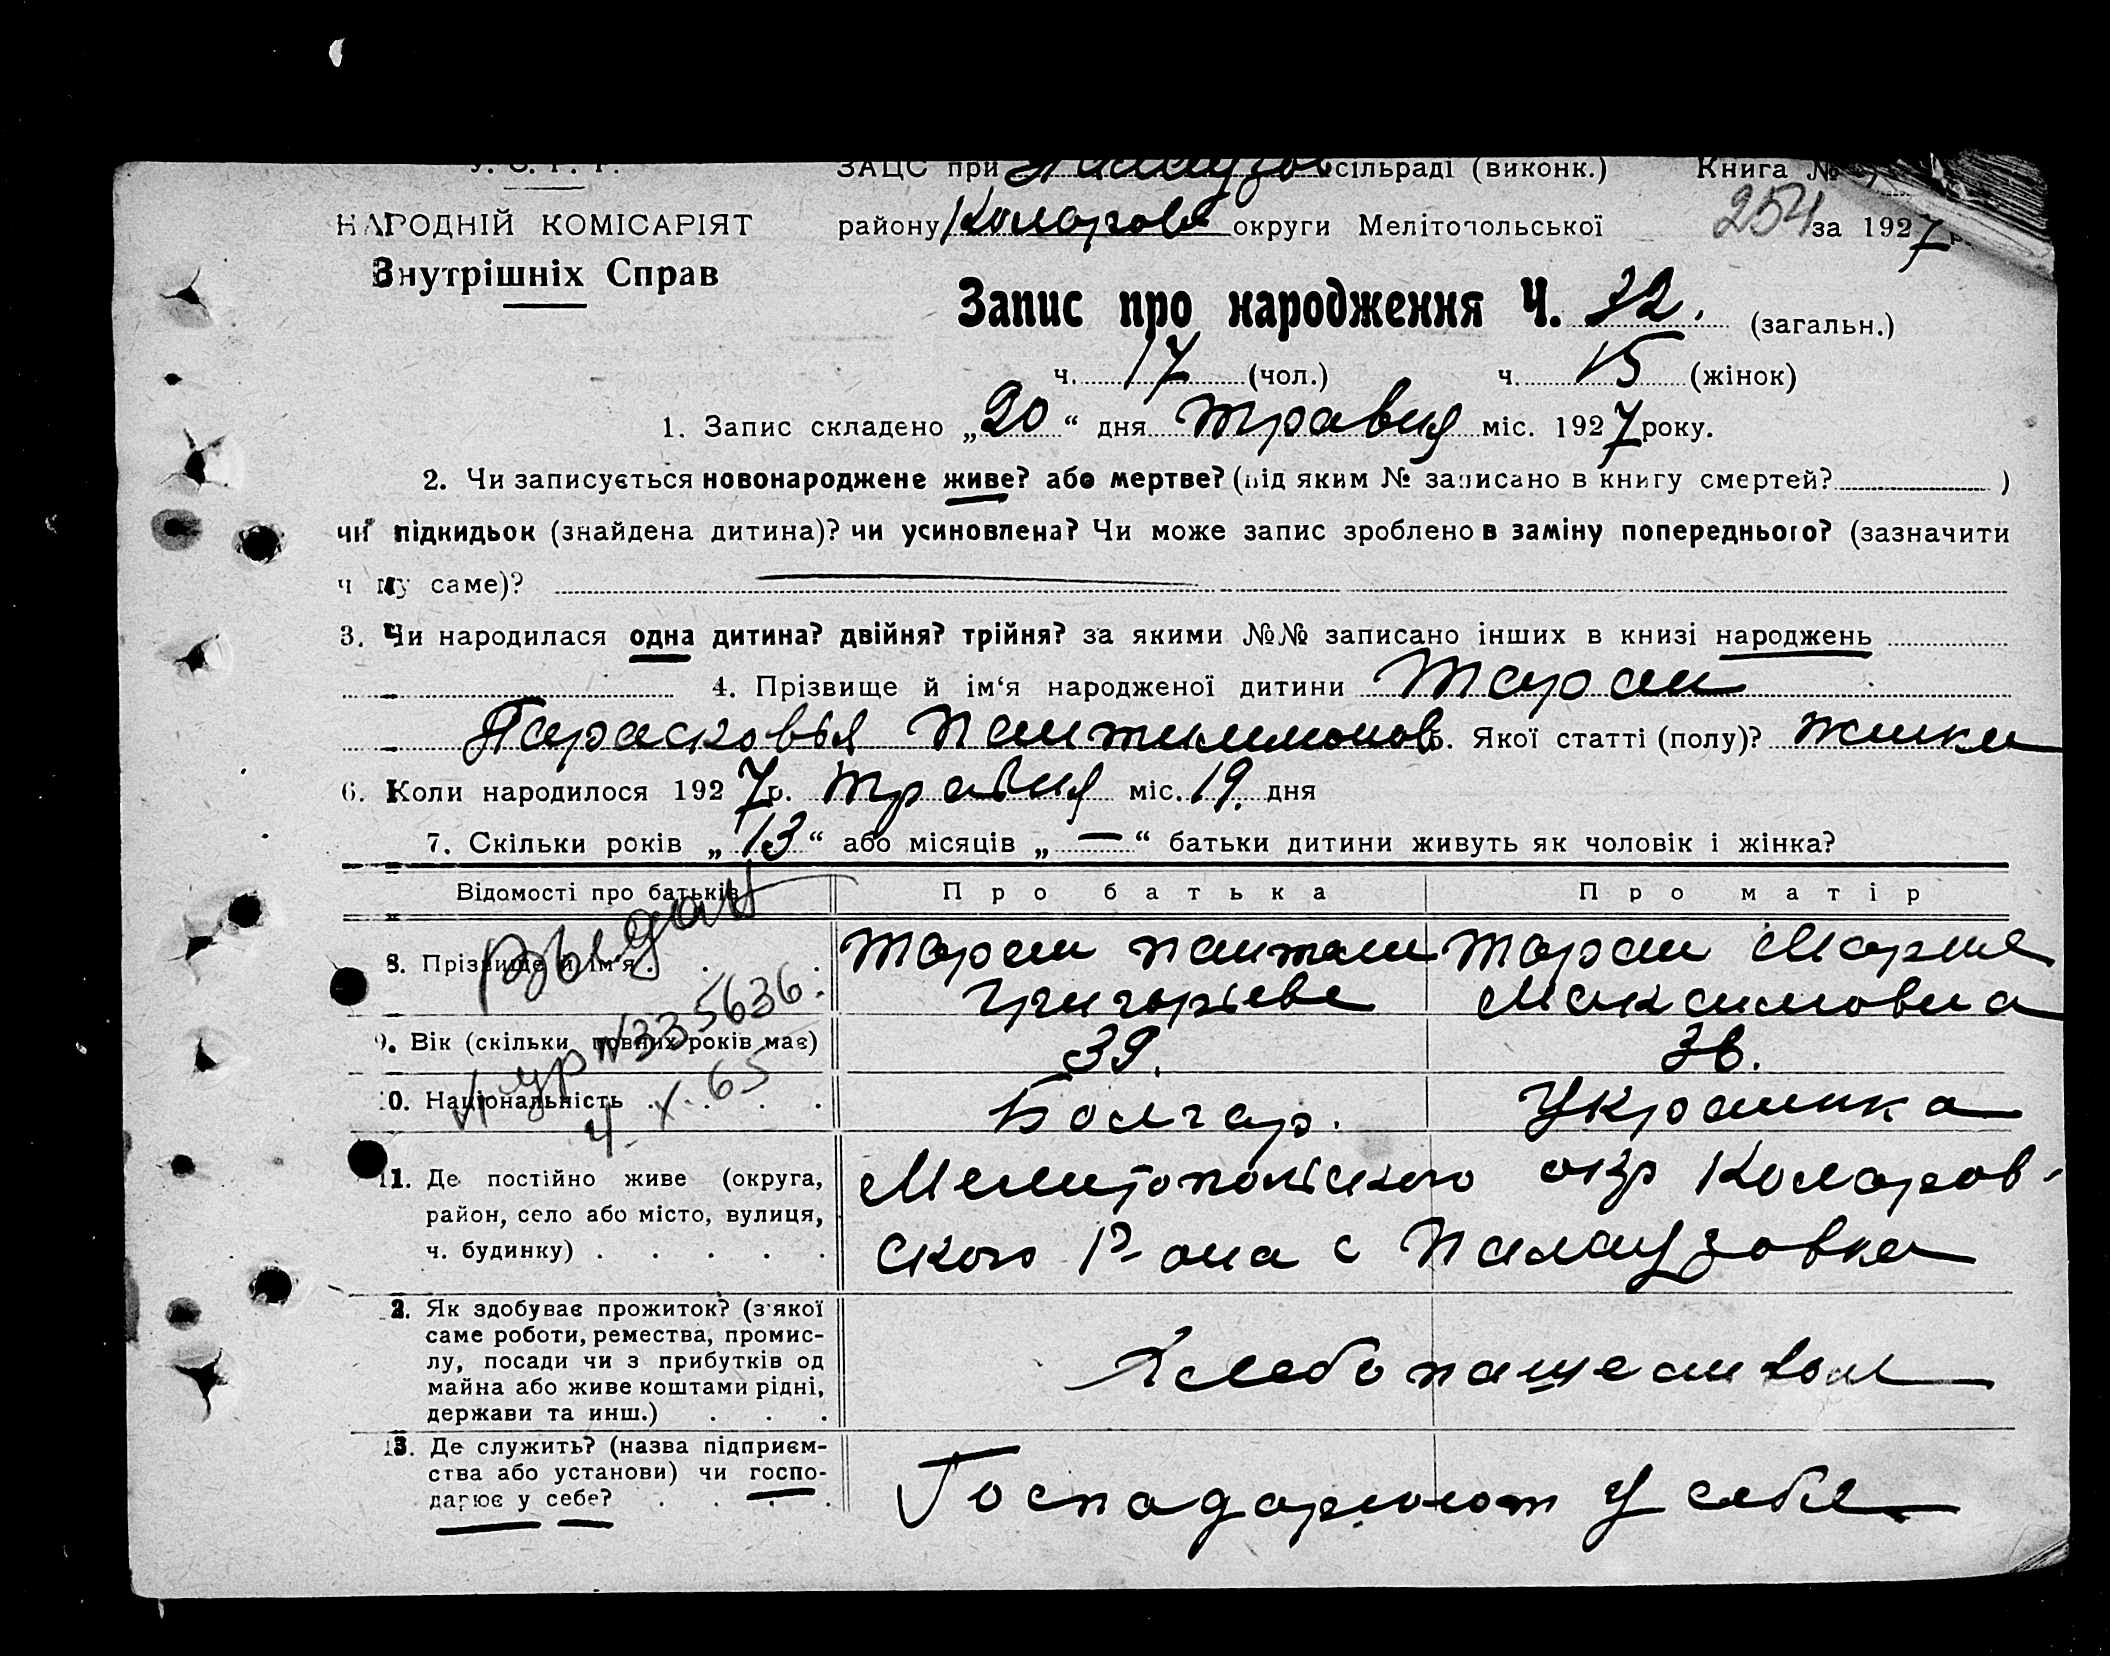 У. С. Р. Р. ЗАЦС при Палаузов сільраді (виконк.) Книга №
НАРОДНІЙ КОМІСАРІЯТ району Коларовс округи Мелітопольської 254 за 1927 р.
Внутрішніх Справ
Запис про народження Ч. 32. (загальн.)
ч. 17 (чол.) ч. 15 (жінок)
1. Запис складено „20“ дня травня міс. 1927 року.
2. Чи записується новонароджене живе? або мертве? (під яким № записано в книгу смертей? )
чи підкидьок (знайдена дитина)? чи усиновлена? Чи може запис зроблено в заміну попереднього? (зазначити
чому саме)?
3. Чи народилася одна дитина? двійня? трійня? за якими №№ записано інших в книзі народжень
4. Прізвище й ім‘я народженої дитини Таран
Парасковья Пантилимонов 5. Якої статті (полу)? жинки
6. Коли народилося 1927 р. травня міс. 19. дня
7. Скільки років „13“ або місяців „—“ батьки дитини живуть як чоловік і жінка?
Відомості про батьків Про батька Про матір
выдан
8. Прізвище й ім‘я Таран Пантели Таран Мария
Григорьева Максимовна
№335636.
9. Вік (скільки повних років має) 39. 36.
4.X.65
10. Національність Болгар. Украинка
11. Де постійно живе (округа, Мелитопольского окр Коларов-
район, село або місто, вулиця, ского Р-она с Палаузовка
ч. будинку)
12. Як здобуває прожиток? (з якої
саме роботи, ремества, промис-
лу, посади чи з прибутків од Хлебопашеством
майна або живе коштами рідні,
держави та инш.)
13. Де служить? (назва підприєм-
ства або установи) чи госпо- Господарюют у себя
дарює у себе?